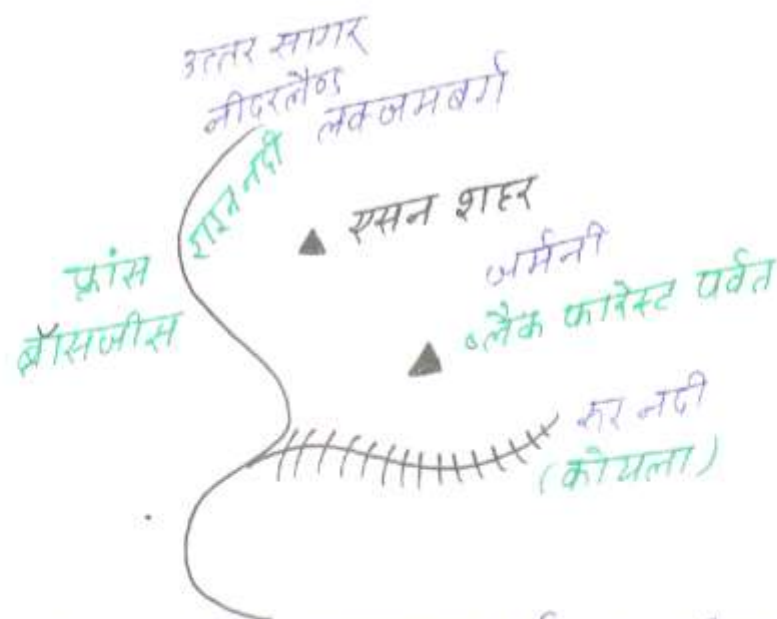 उत्तर सागर
नीदरलैण्ड
लक्जमबर्ग
राइन नदी
एसन शहर
फ्रांस
ब्रॉसजीस
जर्मनी
ब्लैक फारेस्ट पर्वत
रूर नदी
(कोयला)